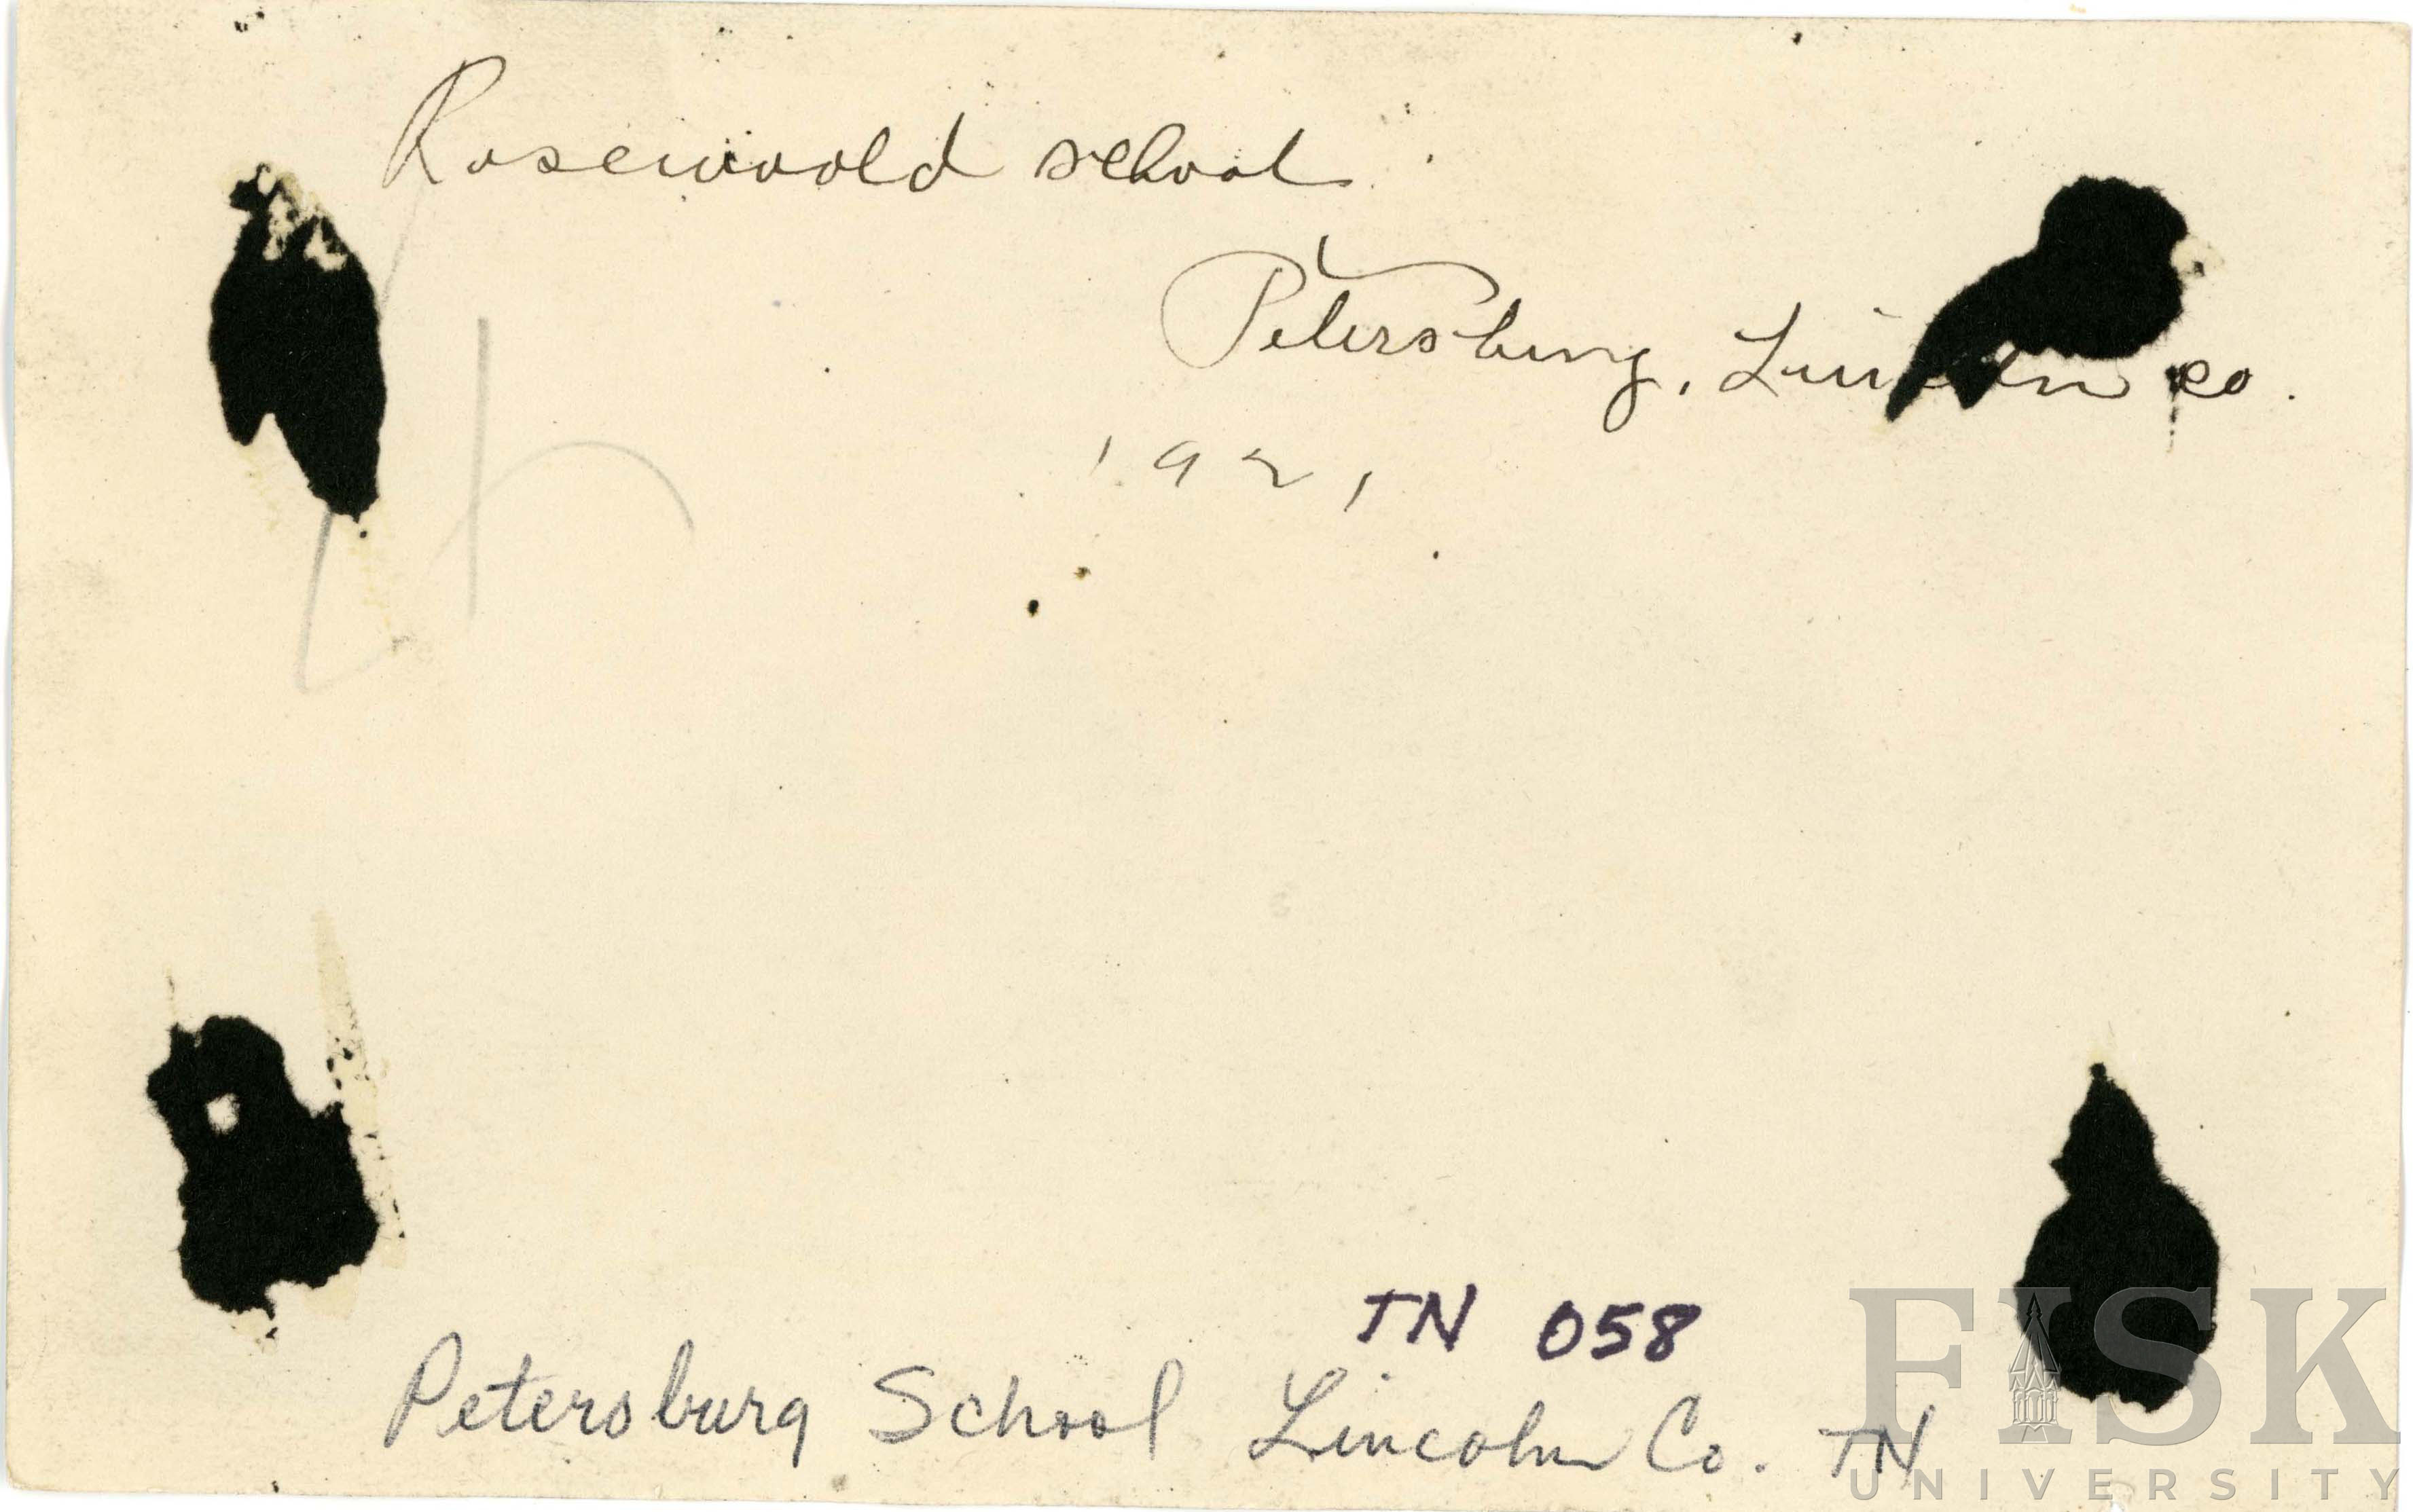 Rosenwoold school
Petersburg, Lincoln co.
1921
TN 058
Petersburg School Lincoln Co. TN
FISK
UNIVERSITY